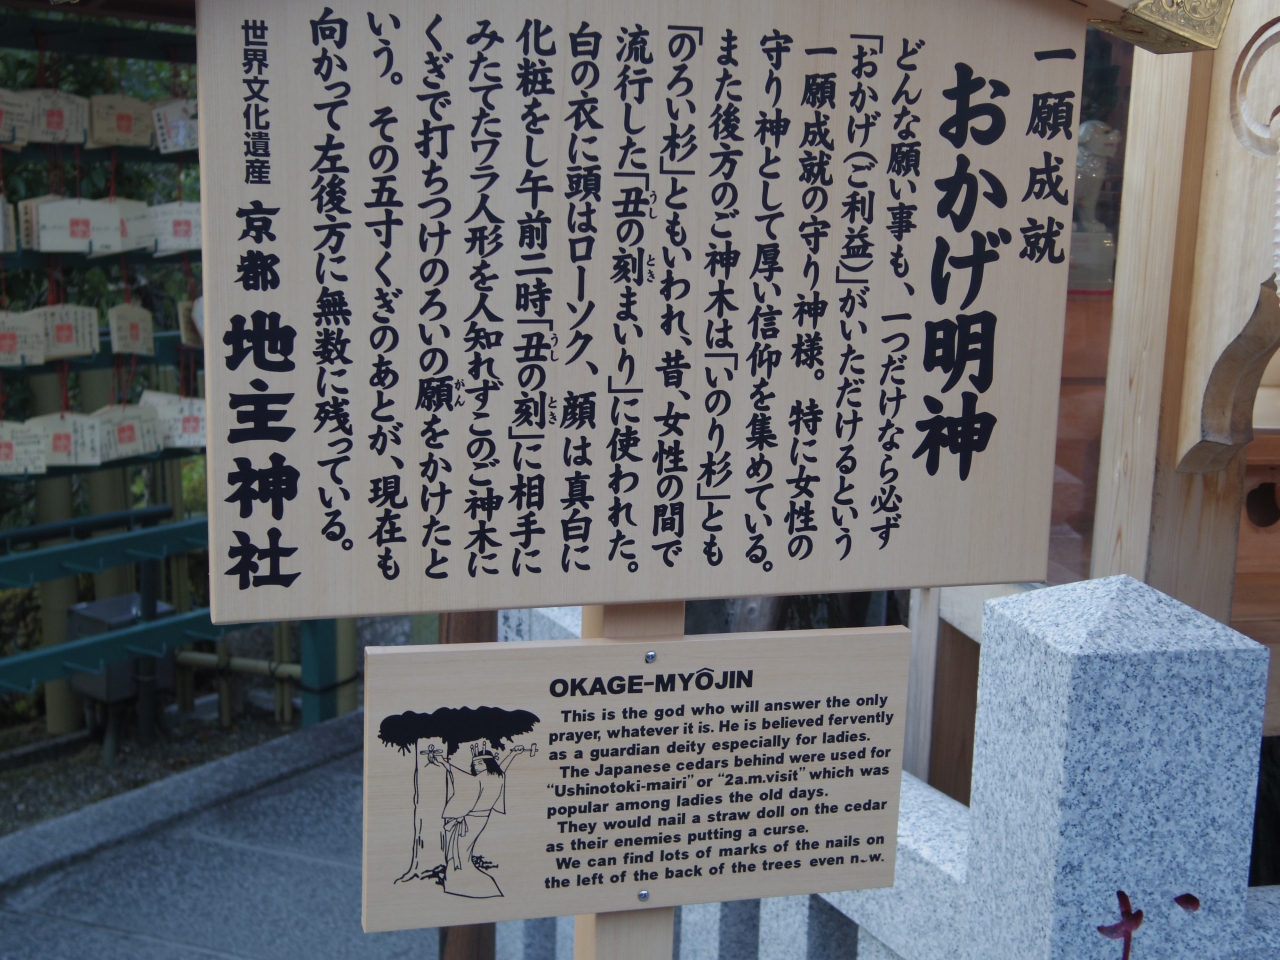 一願成就
おかげ明神
どんな願い事も、一つだけなら必ず
「おかげ(ご利益)」がいただけるという
一願成就の守り神様。特に女性の
守り神として厚い信仰を集めている。
また後方のご神木は「いのり杉」とも
「のろい杉」ともいわれ、昔、女性の間で
流行した「丑の刻まいり」に使われた。
うし とき
白の衣に頭はローソク、顔は真白に
化粧をし午前二時「丑の刻」に相手に
うし とき
みたてたワラ人形を人知れずこのご神木に
くぎで打ちつけのろいの願をかけたと
がん
いう。その五寸くぎのあとが、現在も
向かって左後方に無数に残っている。
世界文化遺産 京都 地主神社
OKAGE-MYÔJIN
This is the god who will answer the only
prayer, whatever it is. He is believed fervently
as a guardian deity especially for ladies.
The Japanese cedars behind were used for
"Ushinotoki-mairi" or "2a.m.visit" which was
popular among ladies the old days.
They would nail a straw doll on the cedar
as their enemies putting a curse.
We can find lots of marks of the nails on
the left of the back of the trees even n.w.